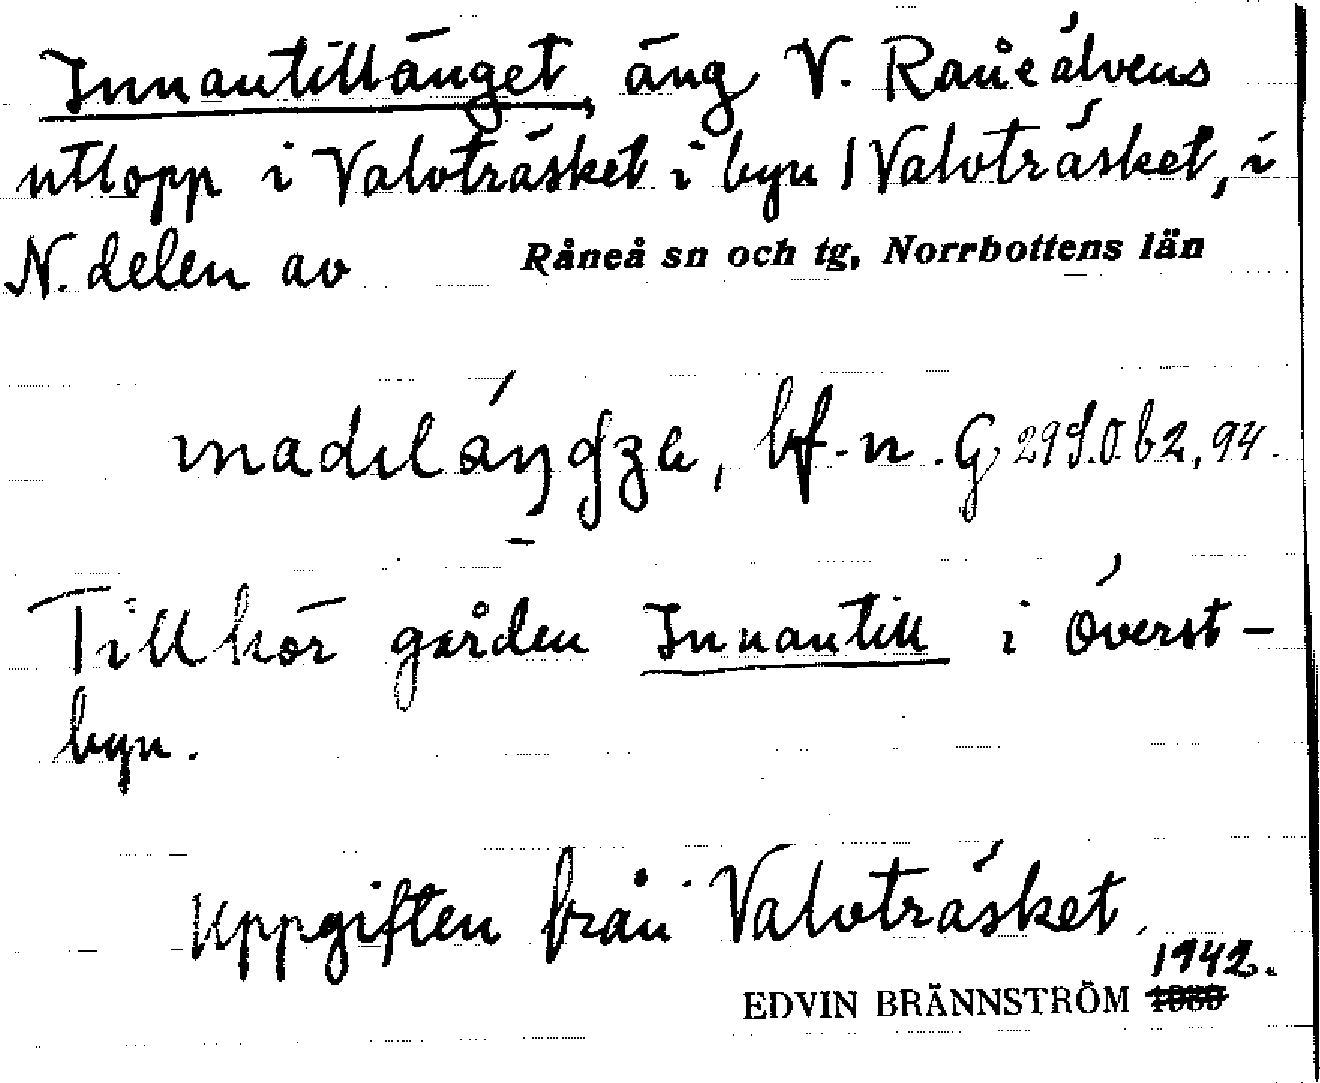 Innantilländet, äng V. Råneälvens
utlopp i Valvträsket i byn Valvträsket, i
N. delen av Råneå sn och tg, Norrbottens län
bf. n.
Tillhör gården Innantill i Överst-
byn.
Uppgiften från Valvträsket.
1942.
EDVIN BRÄNNSTRÖM 1930